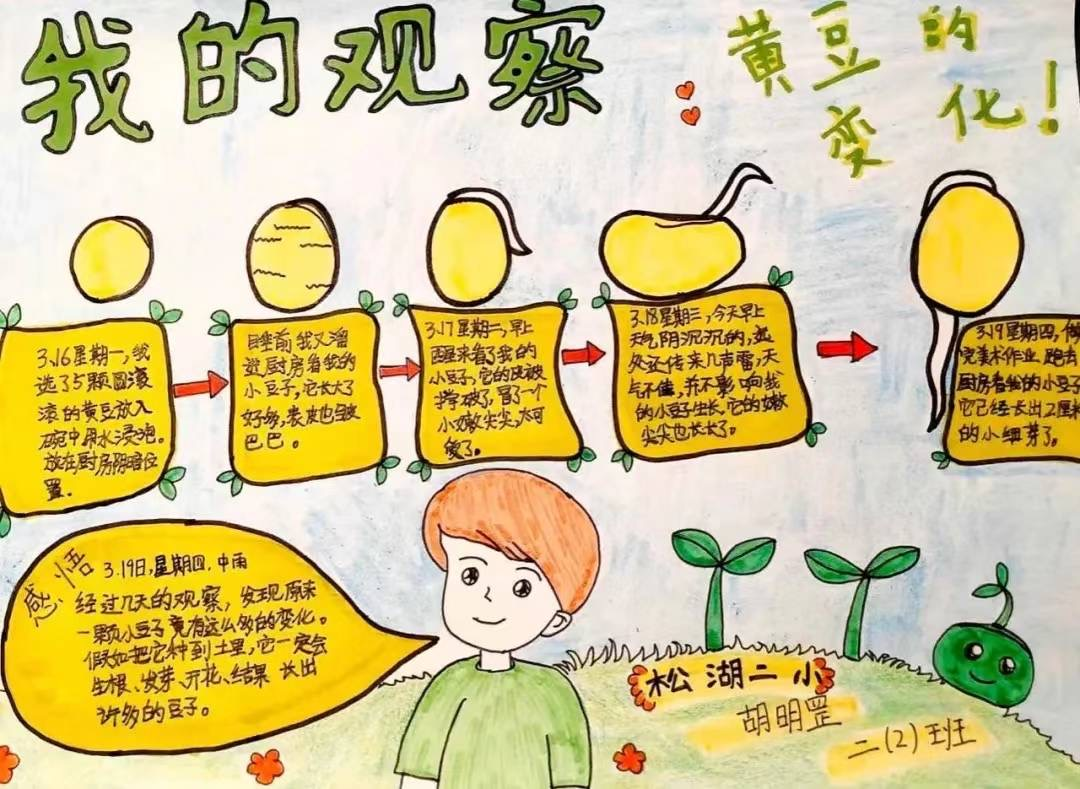 我的观察
黄豆的
变化！
3.16星期一，我
选了5颗圆滚
滚的黄豆放入
碗中用水浸泡。
放在厨房阴暗位
置.
睡前我又溜
进厨房看我的
小豆子，它长大了
好多，表皮也皱
巴巴。
3.17星期二，早上
醒来看我的
小豆子，它的皮被
撑破了，冒了一个
小嫩尖尖，太可
爱了。
3.18星期三，今天早上
天气阴沉沉的，远
处还传来几声雷，天
气不佳，并不影响我
的小豆子生长，它的嫩
尖尖也长长了。
3.19星期四，做
完美术作业，跑去
厨房看我的小豆子
它已经长出2厘米
的小细芽了。
感悟
3.19日，星期四，中雨
经过几天的观察，发现原来
一颗小豆子竟有这么多的变化。
假如把它种到土里，它一定会
生根、发芽、开花、结果 长出
许多的豆子。
松湖二小
胡明罡
二(2)班